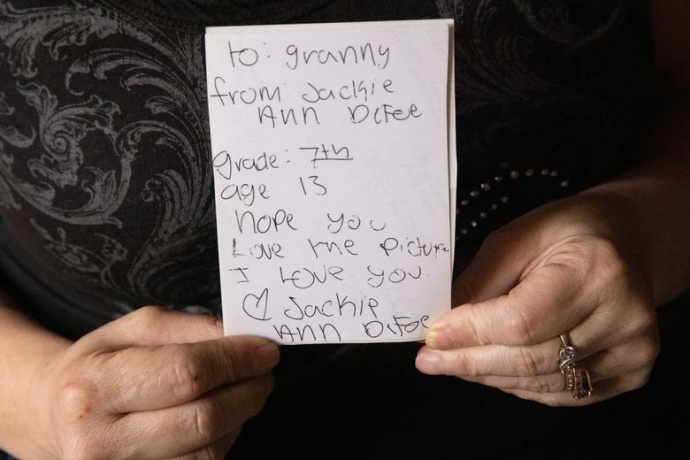 to: granny
from Jackie
Ann
grade: 7th
age 13
hope you
Love the Picture
I Love you.
♡ Jackie
Ann